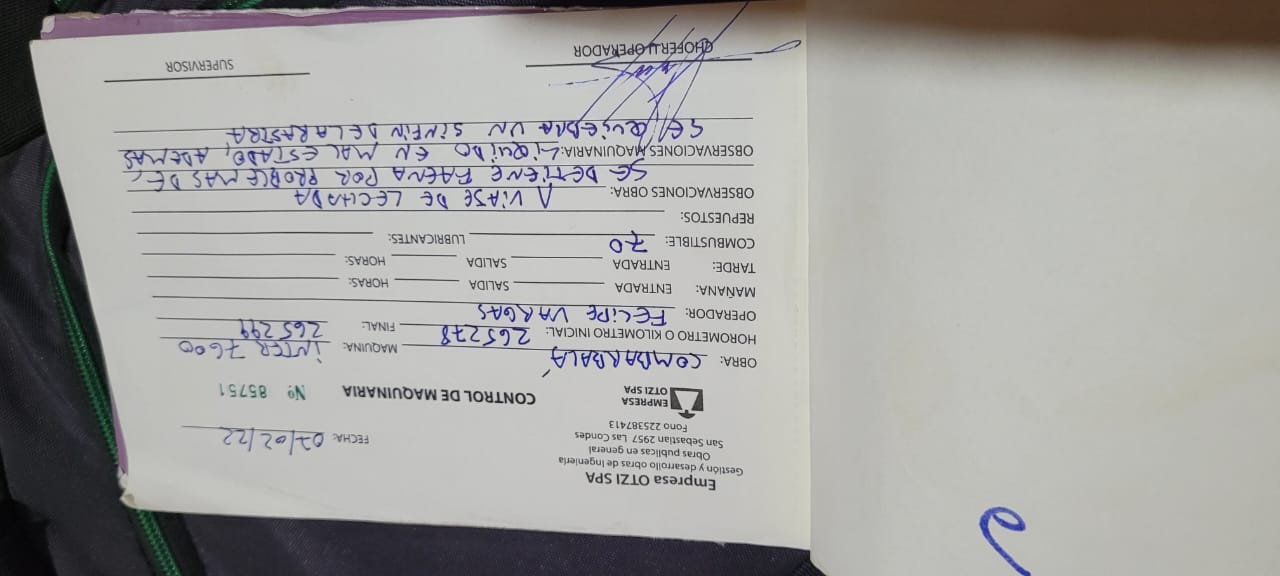 Empresa OTZI SPA
Gestión y desarrollo obras de Ingenieria
Obras publicas en general
San Sebastian 2957 Las Condes
Fono 225387413
EMPRESA
OTZI SPA
FECHA: 07/02/22
CONTROL DE MAQUINARIA Nº 85751
OBRA: COMBARBALÁ MAQUINA: INTER 7600
HOROMETRO O KILOMETRO INICIAL: 265278 FINAL: 265299
OPERADOR: FELIPE VARGAS
MAÑANA: ENTRADA SALIDA HORAS:
TARDE: ENTRADA SALIDA HORAS:
COMBUSTIBLE: 70 LUBRICANTES:
REPUESTOS:
OBSERVACIONES OBRA: 1 VIAJE DE LECHADA
SE DETIENE FAENA POR PROBLEMAS DE
OBSERVACIONES MAQUINARIA: LIQUIDO EN MAL ESTADO, ADEMAS
SE QUIEBRA UN SINFIN DE LA RASTRA
CHOFER U OPERADOR
SUPERVISOR